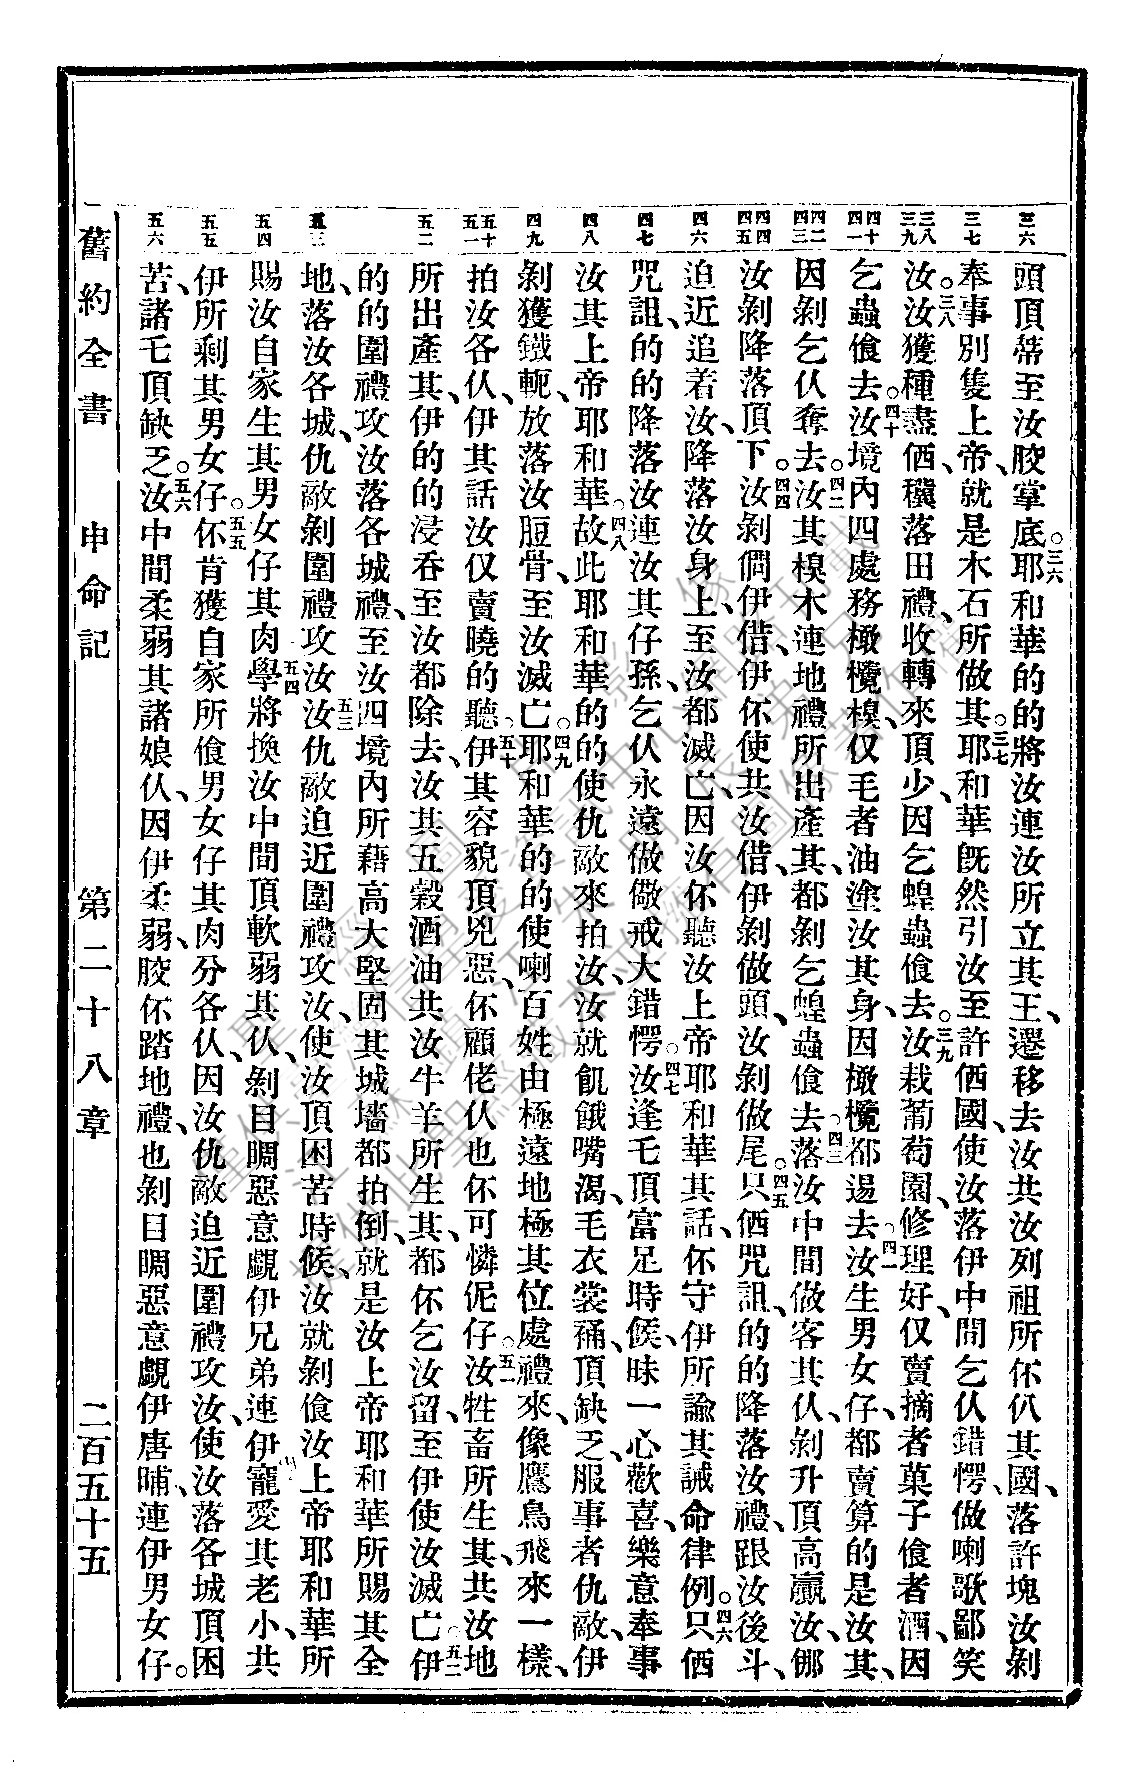 三六
頭頂蒂至汝胶掌底。三六耶和華的的將汝連汝所立其王、遷移去汝共汝列祖所伓仈其國、落許塊汝剝
三七
奉事別隻上帝、就是木石所做其。三七耶和華旣然引汝至許㑚國、使汝落伊中間乞仈錯愕、做喇歌鄙笑
三八 三九
汝。三八汝獲種盡㑚穬落田禮、收轉來頂少、因乞蝗蟲飡去。三九汝栽葡萄園、修理好、仅賣摘者菓子飡者酒、因
四十 四一
乞蟲飡去。四十汝境內四處務橄欖模、仅毛者油塗汝其身、因橄欖都逷去。四一汝生男女仔、都賣算的是汝其、
四二 四三
因剝乞仈奪去。四二汝其模木連地禮所出產其、都剝乞蝗蟲飡去。四三落汝中間做客其仈、剝升頂高贏汝、㑚
四四 四五
汝剝降落頂下。四四汝剝倜伊借、伊伓使共汝借、伊剝做頭、汝剝做尾。四五只㑚咒詛、的的降落汝禮、跟汝後斗、
四六
迫近追着汝、降落汝身上、至汝都滅亡、因汝伓聽汝上帝耶和華其話、伓守伊所諭其誡命律例。四六只㑚
四七
咒詛、的的降落汝連汝其仔孫、乞仈永遠做儆戒大錯愕。四七汝逢毛頂富足時候、昧一心歡喜樂意奉事
四八
汝其上帝耶和華。四八故此耶和華的的使仇敵來拍汝、汝就飢餓嘴渴、毛衣裳裓、頂缺乏、服事者仇敵、伊
四九
剝獲鐵軛、放落汝脰骨、至汝滅亡。四九耶和華的的使喇百姓由極遠地極其位處禮來、像鷹鳥飛來一樣、
五十 五一
拍汝各仈、伊其話汝仅賣曉的聽。五十伊其容貌頂兇惡、伓顧佬仈也伓可憐伲仔。五一汝牲畜所生其、共汝地
五二
所出產其、伊的的浸吞至汝都除去、汝其五穀酒油共汝牛羊所生其、都伓乞汝留、至伊使汝滅亡。五二伊
的的圍禮攻汝落各城禮、至汝四境內所藉高大堅固其城墻都拍倒、就是汝上帝耶和華所賜其全
五三
地、落汝各城、仇敵剝圍禮攻汝。五三汝仇敵迫近圍禮攻汝、使汝頂困苦時候、汝就剝飡汝上帝耶和華所
五四
賜汝自家生其男女仔其肉。五四學將換汝中間頂軟弱其仈、剝目睭惡意覷伊兄弟連伊寵愛其老小、共
五五
伊所剩其男女仔。五五伓肯獲自家所飡男女仔其肉分各仈、因汝仇敵迫近圍禮攻汝、使汝落各城頂困
五六
苦、諸毛頂缺乏。五六汝中間柔弱其諸娘仈、因伊柔弱、胶伓踏地禮、也剝目睭惡意覷伊唐晡、連伊男女仔。
舊約全書 申命記 第二十八章 二百五十五